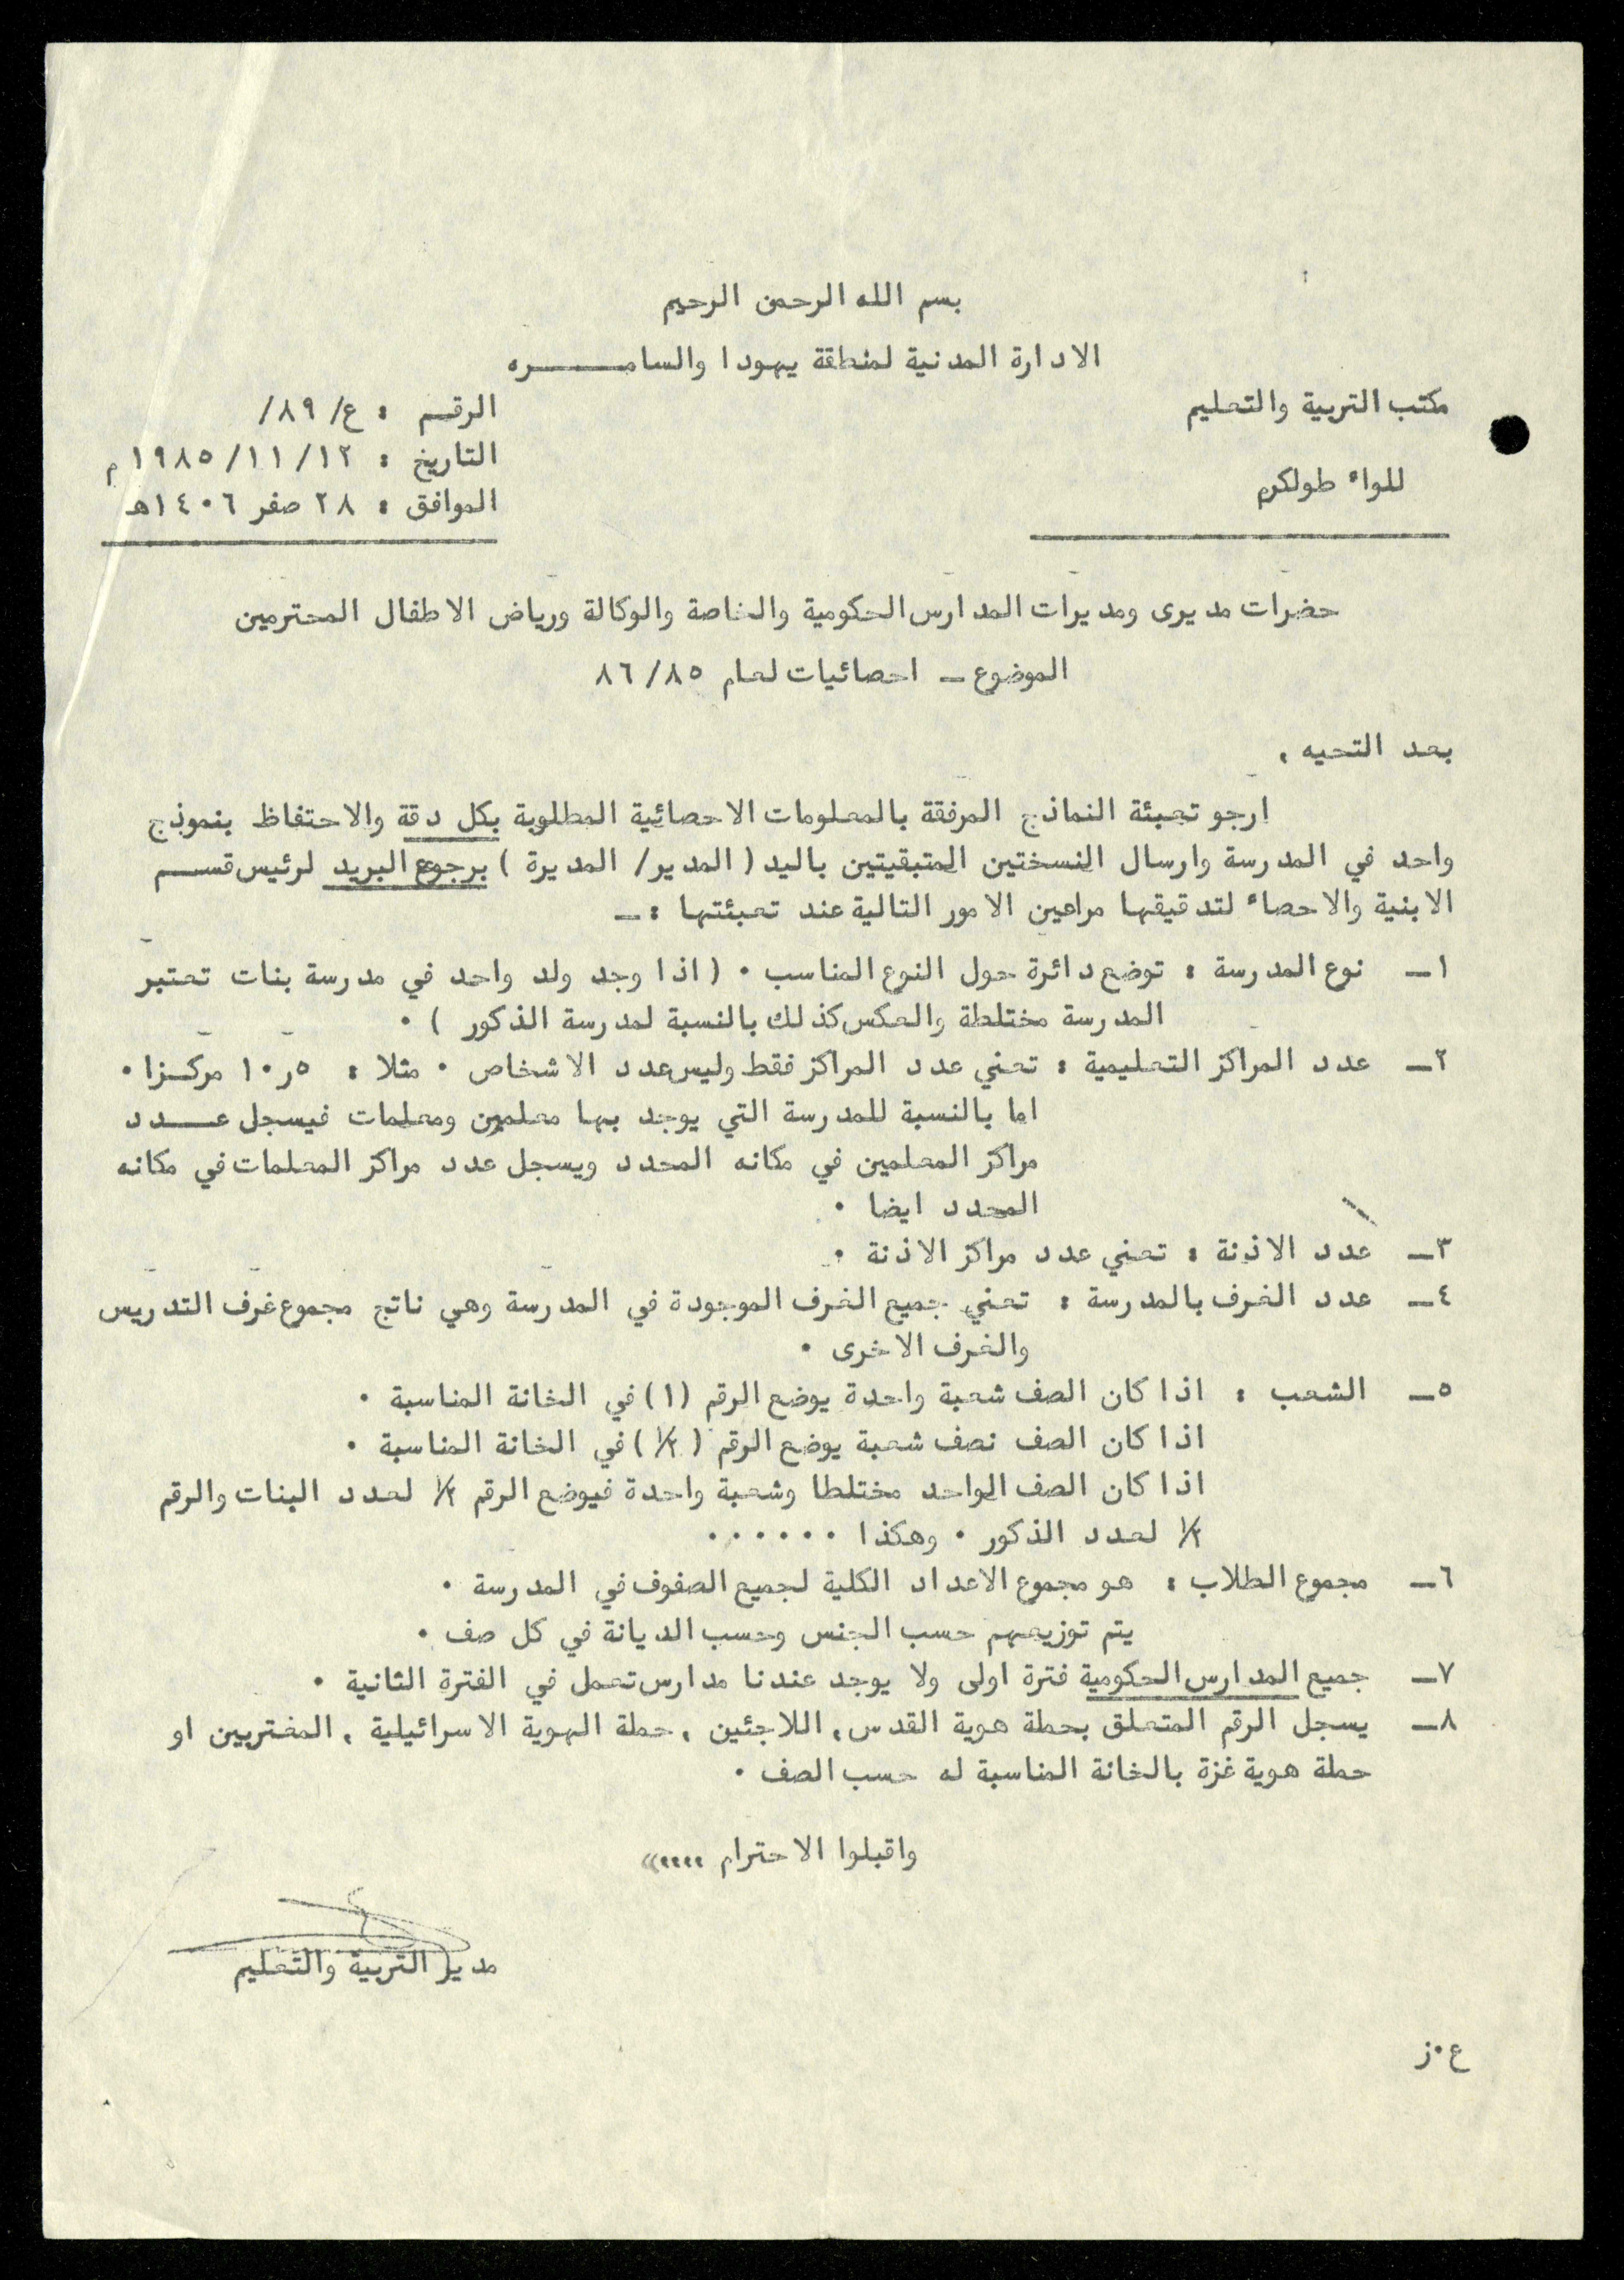 بسم الله الرحمن الرحيم
الادارة المدنية لمنطقة يهودا والسامـــــره
مكتب التربية والتعليم
للواء طولكرم
الرقم : ع/٨٩/
التاريخ : ١٢/١١/١٩٨٥م
الموافق : ٢٨ صفر ١٤٠٦هـ
حضرات مديرى ومديرات المدارس الحكومية والخاصة والوكالة ورياض الاطفال المحترمين
الموضوع ــ احصائيات لعام ٨٥/٨٦
بعد التحيه ,
ارجو تعبئة النماذج المرفقة بالمعلومات الاحصائية المطلوبة بكل دقة والاحتفاظ بنموذج
واحد في المدرسة وارسال النسختين المتبقيتين باليد ( المدير/ المديرة ) برجوع البريد لرئيس قســـم
الابنية والاحصاء لتدقيقها مراعين الامور التالية عند تعبئتها :ــ
١ــ نوع المدرسة : توضع دائرة حول النوع المناسب ٠ ( اذا وجد ولد واحد في مدرسة بنات تعتبر
المدرسة مختلطة والعكس كذلك بالنسبة لمدرسة الذكور ) ٠
٢ــ عدد المراكز التعليمية : تعني عدد المراكز فقط وليس عدد الاشخاص ٠ مثلا : ٥ر١٠ مركــزا ٠
اما بالنسبة للمدرسة التي يوجد بها معلمين ومعلمات فيسجل عـــدد
مراكز المعلمين في مكانه المحدد ويسجل عدد مراكز المعلمات في مكانه
المحدد ايضا ٠
٣ــ عدد الاذنة : تعني عدد مراكز الاذنة ٠
٤ــ عدد الغرف بالمدرسة : تعني جميع الغرف الموجودة في المدرسة وهي ناتج مجموع غرف التدريس
والغرف الاخرى ٠
٥ــ الشعب : اذا كان الصف شعبة واحدة يوضع الرقم (١) في الخانة المناسبة ٠
اذا كان الصف نصف شعبة يوضع الرقم ( ١/٢ ) في الخانة المناسبة ٠
اذا كان الصف الواحد مختلطا وشعبة واحدة فيوضع الرقم ١/٢ لعدد البنات والرقم
١/٢ لعدد الذكور ٠ وهكذا ٠٠٠٠٠٠
٦ــ مجموع الطلاب : هو مجموع الاعداد الكلية لجميع الصفوف في المدرسة ٠
يتم توزيعهم حسب الجنس وحسب الديانة في كل صف ٠
٧ــ جميع المدارس الحكومية فترة اولى ولا يوجد عندنا مدارس تعمل في الفترة الثانية ٠
٨ــ يسجل الرقم المتعلق بحملة هوية القدس , اللاجئين , حملة الهوية الاسرائيلية , المغتربين او
حملة هوية غزة بالخانة المناسبة له حسب الصف ٠
واقبلوا الاحترام ,,,,«
مدير التربية والتعليم
ع٠ز